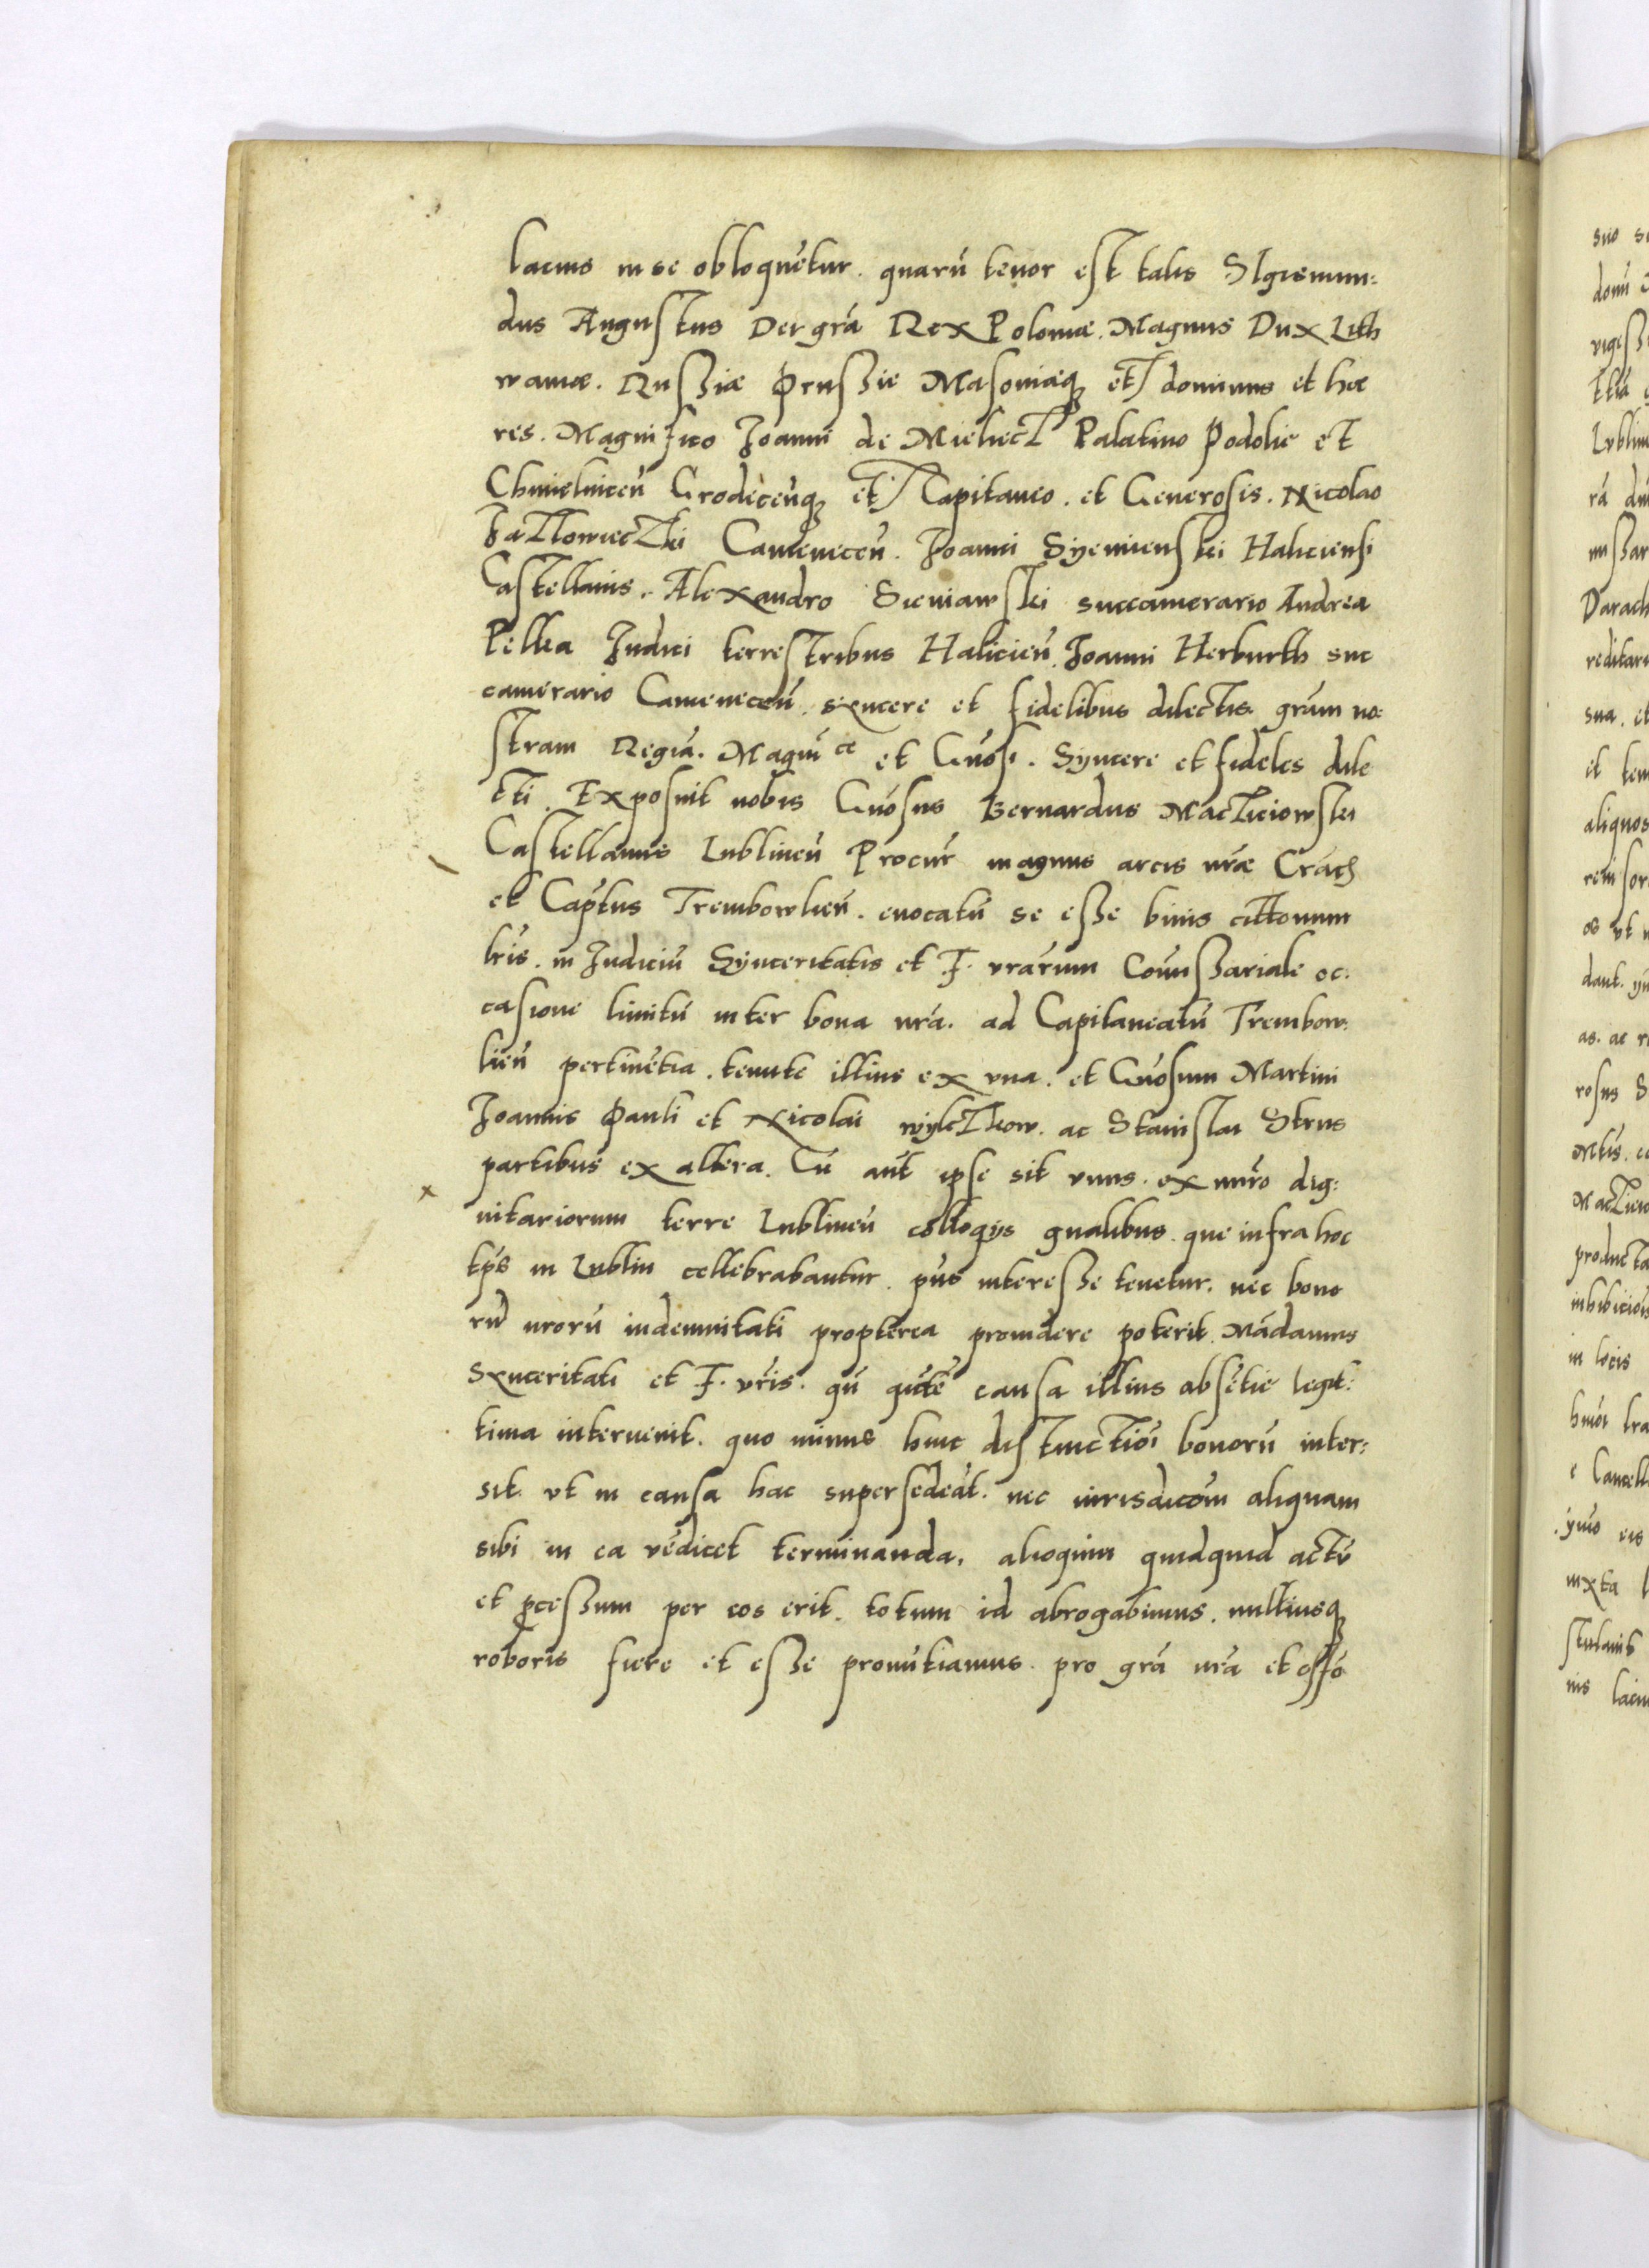 lacius in se obloquētur. quarū tenor est talis SIgismun:
dus Augustus Dei gr̄a Rex Poloniæ. Magnus Dux Lith
waniæ. Russiæ Prussie Masoniæq₃ etc dominus et hæ
res. Magnifico Joanni de Mielecz Palatino Podolie et
Chmielnicen̄ Grodecen̄q₃ etc Capitaneo. et Generosis. Nicolao
Jazlowieczki Camenecen̄. Joanni Syenienski Haliciensi
Castellanis. Alexandro Sieniawski succamerario Andrea
Pelka Judici terrestribus Halicien̄. Joanni Herburth suc
camerario Camenecen̄. syncere et fidelibus dilectis gr̄am no
stram Regiā. Magn̄ice et Gn̄osi. Syncere et fideles dile
cti. Exposuit nobis Gn̄osus Bernardus Macziciowski
Castellanus Lublinen̄ Procur̄ magnus arcis nr̄æ Crac̄
et Cap̄tus Trembowlien̄. euocatū se esse binis cittōnum
lr̄is. in Judiciū Synceritatis et F. vr̄arum Com̄issariale oc:
casione limitū inter bona nr̄a. ad Capitaneatū Trembow:
lien̄ pertinētia. tenute illius ex vna. et Gn̄osum Martini
Joannis Pauli et Nicolai wylczkow. ac Stanislai Strus
partibus ex altera. Cū aūt ipse sit vnus. ex num̄ro dig:
nitariorum terre Lublinen̄ colloqijs gn̄alibus. que infra hoc
tp̄s in Lublin cellebrabantur. p̄ns interesse tenetur. nec bono
rū nr̄orū indemnitati propterea prouidere poterit. Mādamus
Synceritati et F. vr̄is. qn̄ quidē causa illius absētie legit:
tima interuenit. quo minus huic distinctiōi bonorū inter:
sit. vt in causa hac supersedeāt. nec iurisdicōm aliquam
sibi in ea vēdicet terminanda. alioquin quidquid actū
et ꝓcessum per eos erit. totum id abrogabimus. nulliusq₃
roboris fiere et esse pronūtiamus. pro gr̄a nr̄a et off̄o